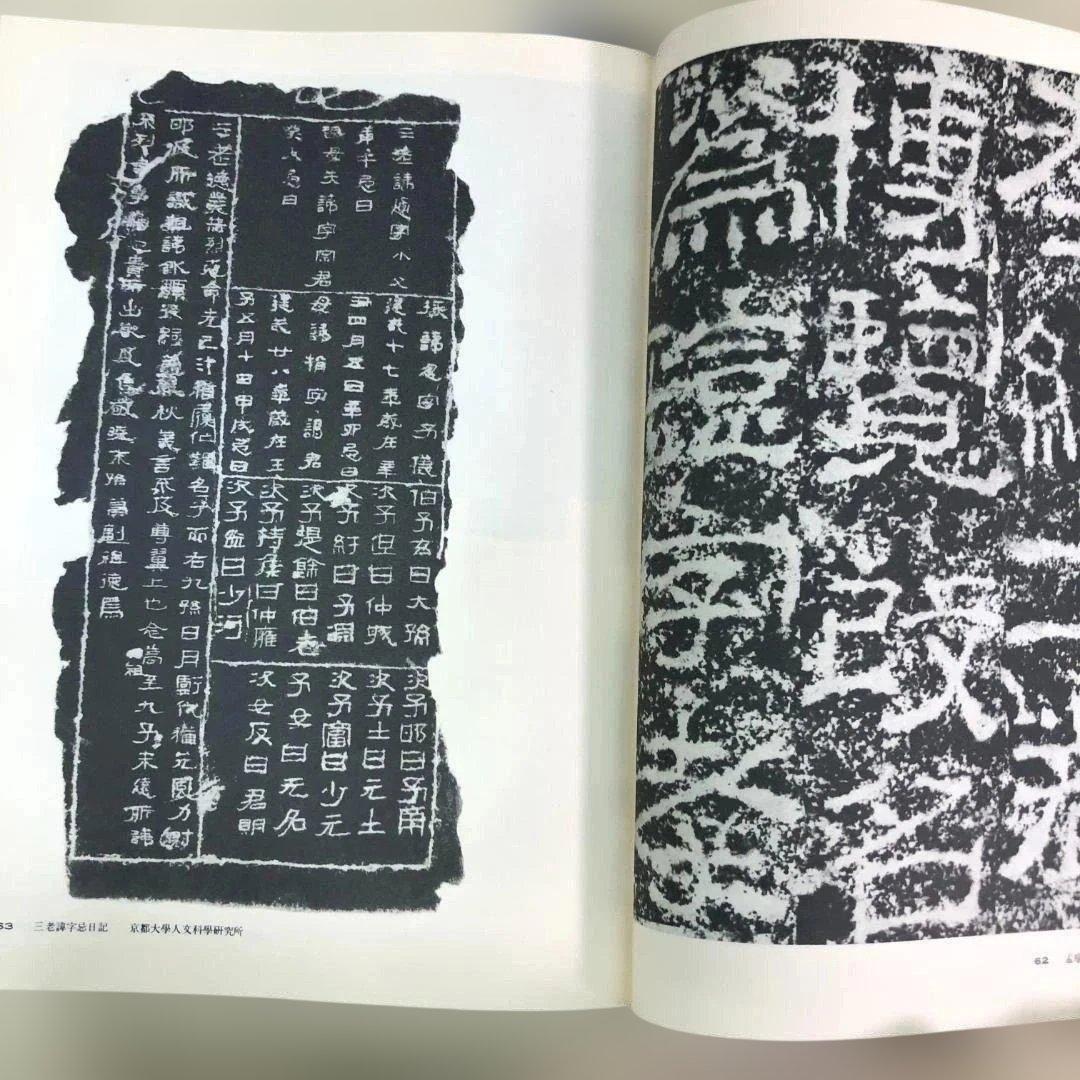 孝經二卷
博覽改名
爲琁字孝
62
三老諱通字小父
庚午忌日
祖母失諱字宗君
癸未忌日
掾諱忽字子儀
建武十七年歲在辛
丑四月五日辛卯忌日
母諱捐字謁君
建武廿八年歲在壬
子五月十日甲戌忌日
伯子玄曰大孫
次子但曰仲城
次子紆曰子淵
次子提餘曰伯老
次子持侯曰仲廱
次子盆曰少河
次子邯曰子南
次子士曰元士
次子富曰少元
子女曰无名
次女反曰君明
三老德業赫烈克命先己汁稽履仁難名予而右九孫日月虧代猶元風力射
邯及所識祖諱欽顯後嗣蓋春秋義言不及尊翼上也念高祖至九子未遠所諱
不列言事觸忌貴所出嚴及焦敬曉末孫冀副祖德焉
63 三老諱字忌日記 京都大學人文科學研究所